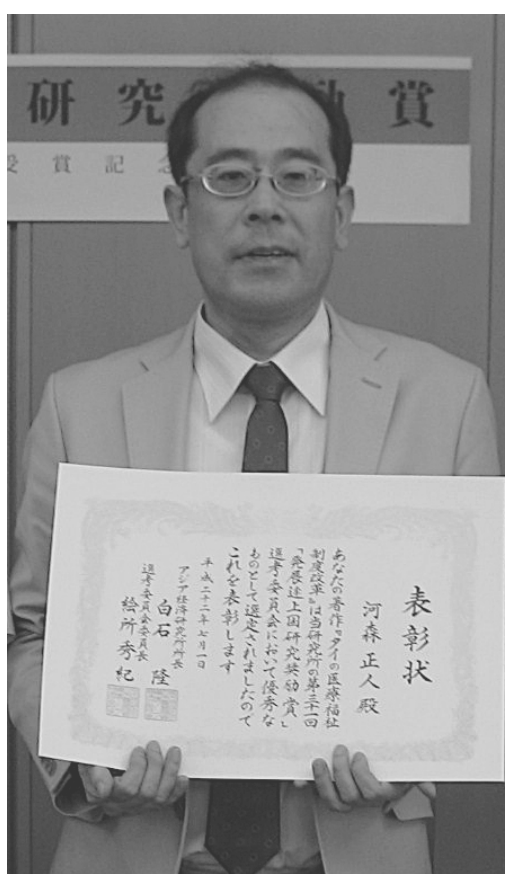 研究 励賞
受賞記念
表彰状
河森正人殿
あなたの著作『タイの医療福祉
制度改革』は当研究所の第三十一回
「発展途上国研究奨励賞」
選考委員会において優秀な
ものとして選定されましたので
これを表彰します
平成二十二年七月一日
アジア経済研究所所長
白石 隆
選考委員会委員長
絵所秀紀